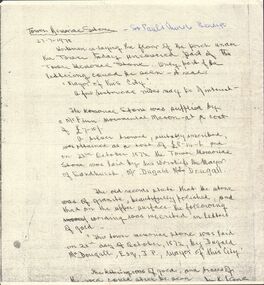 Town Memorial Stone - St Paul's Church Bendigo
27-7-1970
Workmen relaying the floor of the porch under
the Tower today uncovered part of the
Town Memorial Stone. Only part of the
lettering could be seen & read
"Mayor of this City".
A few numerals
The Memorial Stone was supplied by
Monumental Mason at a cost
of £
A silver trowel, suitably inscribed,
was obtained at a cost of £
on 21st October 1872 the Town Memorial
Stone was laid by his Worship the Mayor
of Sandhurst, Mr Dugald McDougall
The old records state that the stone
was of granite, beautifully polished, and
that on the outer surface the following
wording was inscribed in letters
of gold.
"This town memorial stone was laid
on 21st day of October, 1872, by Dugald
McDougall, Esq., J.P., Mayor of this City."
The lettering was of gold, and traces of
the gold could still be seen.